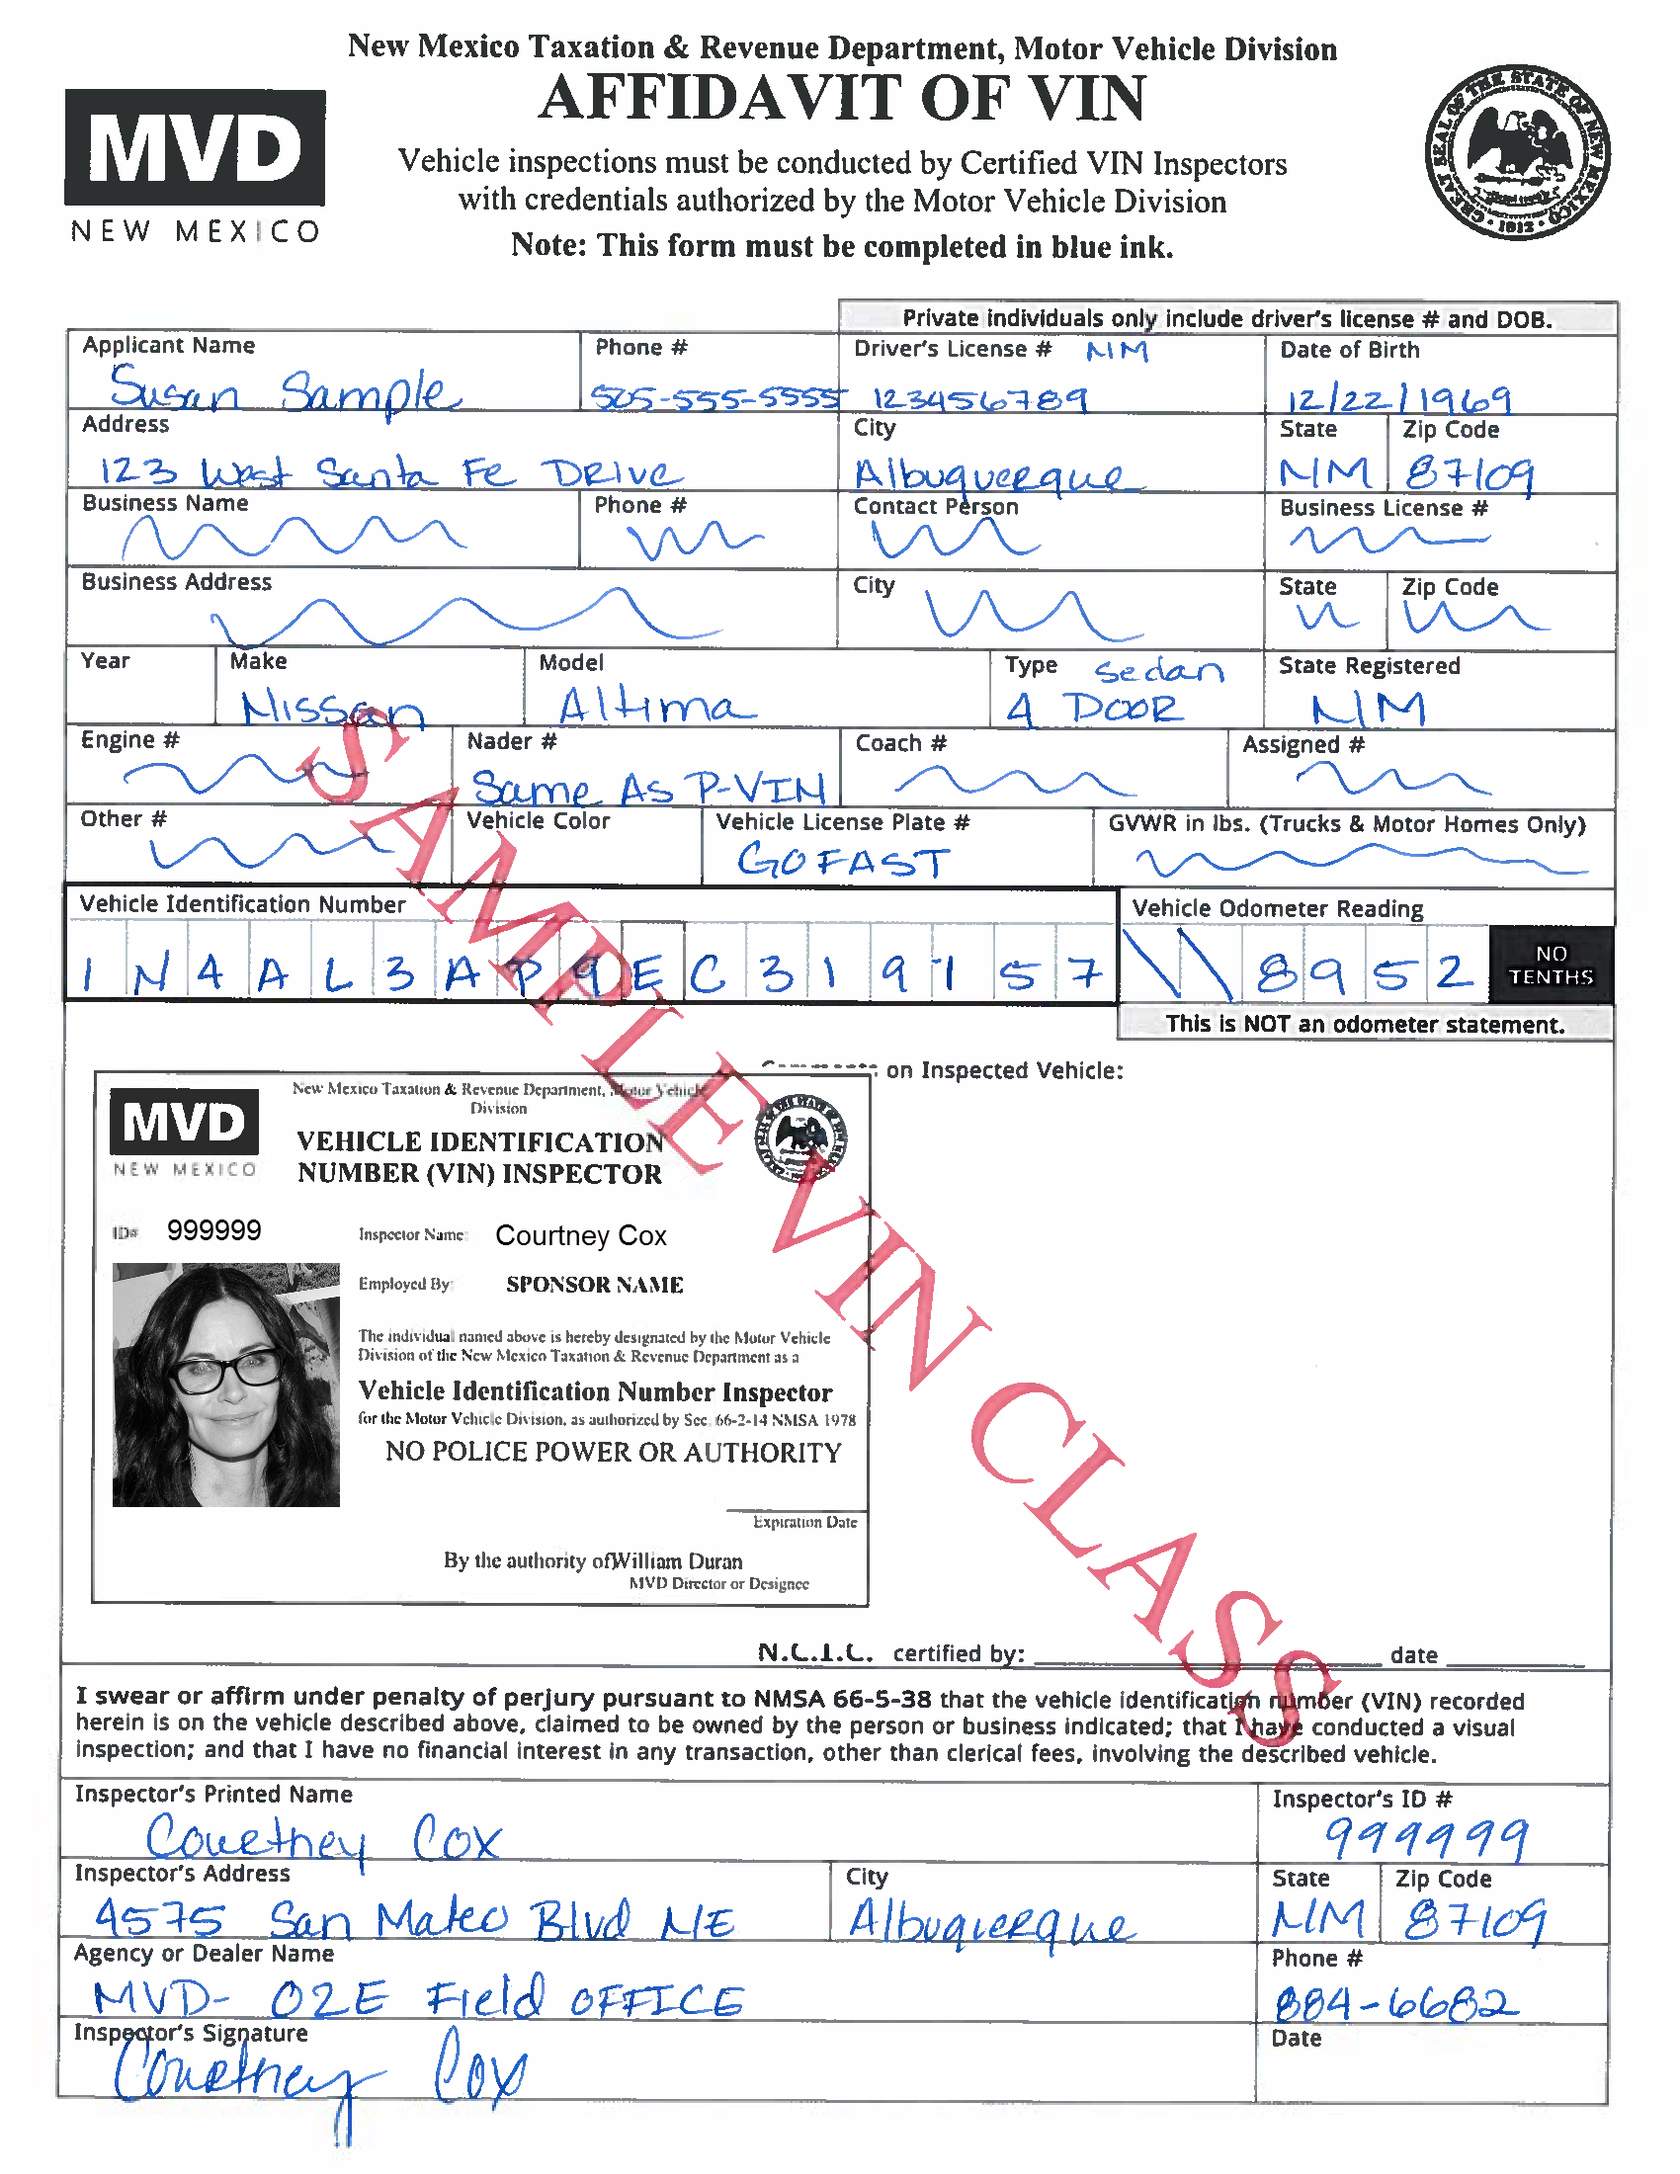 New Mexico Taxation & Revenue Department, Motor Vehicle Division
AFFIDAVIT OF VIN
MVD
NEW MEXICO
Vehicle inspections must be conducted by Certified VIN Inspectors
with credentials authorized by the Motor Vehicle Division
Note: This form must be completed in blue ink.
GREAT SEAL OF THE STATE OF NEW MEXICO • 1912 •
Private individuals only include driver's license # and DOB.
Applicant Name Phone # Driver's License # NM Date of Birth
Susan Sample 505-555-5555 123456789 12/22/1969
Address City State Zip Code
123 West Santa Fe Drive Albuquerque NM 87109
Business Name Phone # Contact Person Business License #
Business Address City State Zip Code
Year Make Model Type Sedan State Registered
Nissan Altima 4 DOOR NM
Engine # Nader # Coach # Assigned #
Same As P-VIN
Other # Vehicle Color Vehicle License Plate # GVWR in lbs. (Trucks & Motor Homes Only)
GOFAST
Vehicle Identification Number Vehicle Odometer Reading
1 N 4 A L 3 A P 9 E C 3 1 9 1 5 7 \ \ 8 9 5 2 NO TENTHS
This is NOT an odometer statement.
on Inspected Vehicle:
New Mexico Taxation & Revenue Department, Motor Vehicle
Division
MVD
NEW MEXICO
VEHICLE IDENTIFICATION
NUMBER (VIN) INSPECTOR
ID# 999999 Inspector Name: Courtney Cox
Employed By: SPONSOR NAME
The individual named above is hereby designated by the Motor Vehicle
Division of the New Mexico Taxation & Revenue Department as a
Vehicle Identification Number Inspector
for the Motor Vehicle Division, as authorized by Sec. 66-2-14 NMSA 1978
NO POLICE POWER OR AUTHORITY
Expiration Date
By the authority of William Duran
MVD Director or Designee
SAMPLE VIN CLASS
N.C.I.C. certified by: date
I swear or affirm under penalty of perjury pursuant to NMSA 66-5-38 that the vehicle identification number (VIN) recorded
herein is on the vehicle described above, claimed to be owned by the person or business indicated; that I have conducted a visual
inspection; and that I have no financial interest in any transaction, other than clerical fees, involving the described vehicle.
Inspector's Printed Name Inspector's ID #
Courtney Cox 999999
Inspector's Address City State Zip Code
4575 San Mateo Blvd NE Albuquerque NM 87109
Agency or Dealer Name Phone #
MVD- 02E Field OFFICE 884-6682
Inspector's Signature Date
Courtney Cox